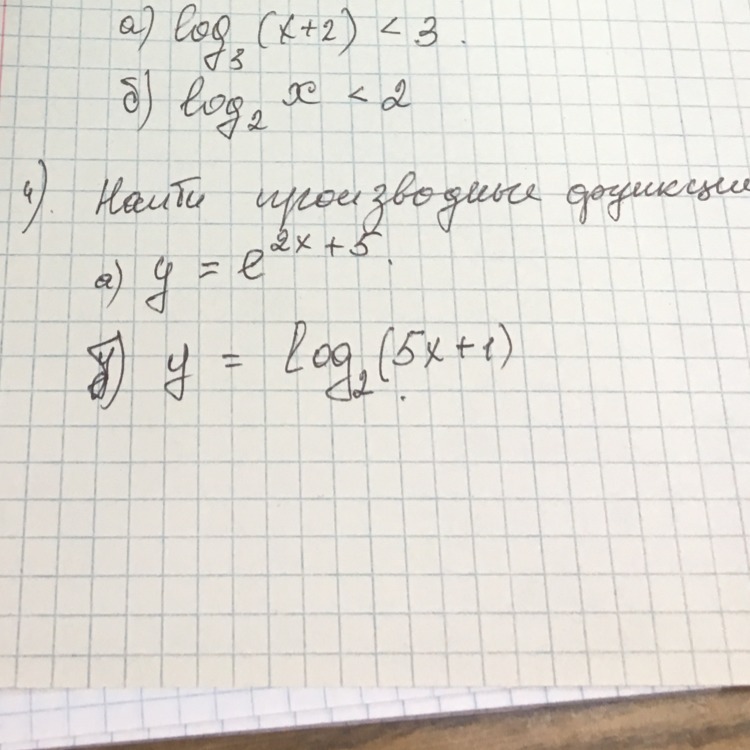 а) log₃ (x+2) < 3.
б) log₂ x < 2
4). Найти производные функции
а) y = e^{2x+5}.
б) y = log₂(5x+1)